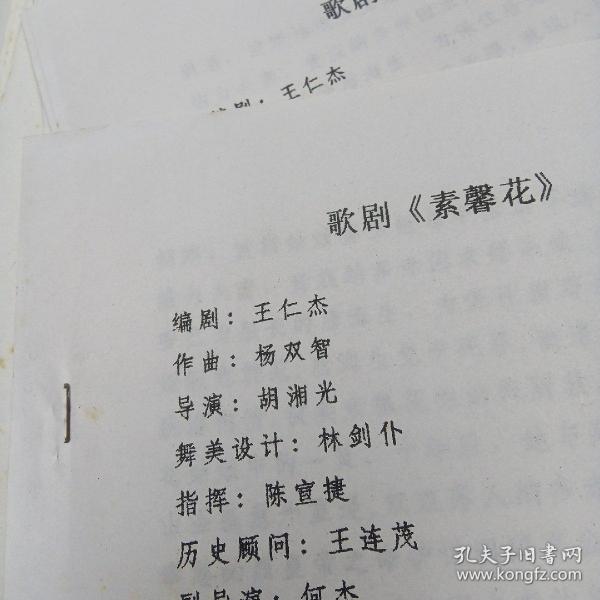 歌剧
编剧：王仁杰
歌剧《素馨花》
编剧：王仁杰
作曲：杨双智
导演：胡湘光
舞美设计：林剑仆
指挥：陈宣捷
历史顾问：王连茂
副导演：何杰
孔夫子旧书网
www.kongfz.com